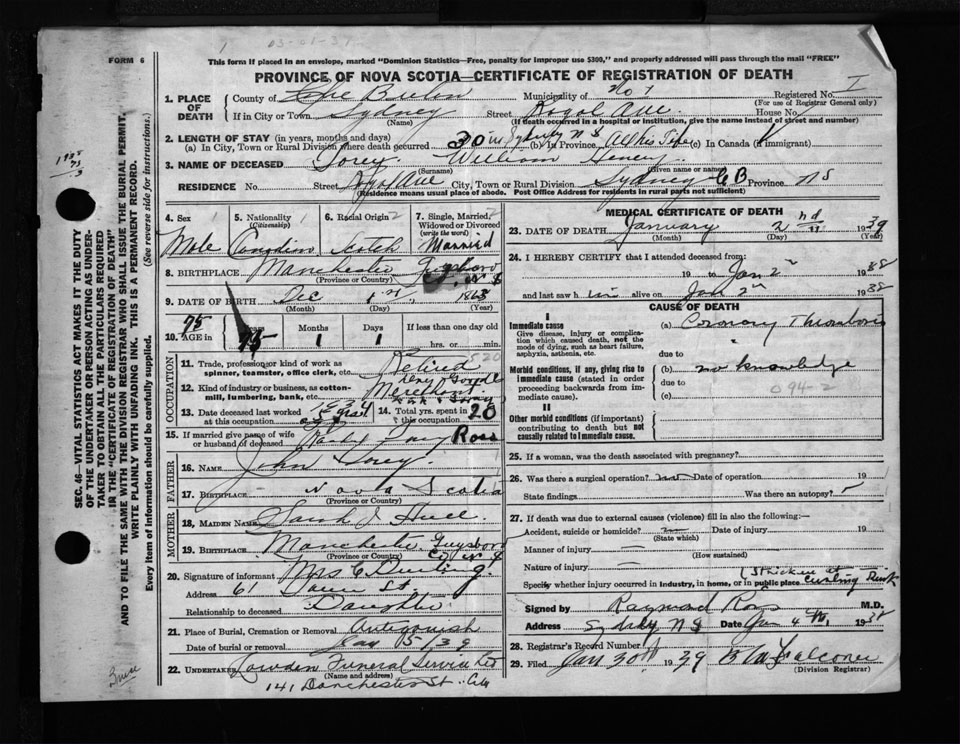 FORM 6
This form if placed in an envelope, marked "Dominion Statistics—Free, penalty for improper use $300," and properly addressed will pass through the mail "FREE"
PROVINCE OF NOVA SCOTIA—CERTIFICATE OF REGISTRATION OF DEATH
1. PLACE OF DEATH
County of Cape Breton Municipality of No 1 Registered No. (For use of Registrar General only)
If in City or Town Sydney (Name) Street Royal Ave. House No.
(If death occurred in a hospital or institution, give the name instead of street and number)
2. LENGTH OF STAY (in years, months and days)
(a) In City, Town or Rural Division where death occurred 30 in Sydney N S (b) In Province All his life (c) In Canada (if immigrant)
3. NAME OF DECEASED William Henry
(Surname) (Given name or names)
RESIDENCE No. Street Royal Ave City, Town or Rural Division Sydney C B Province N S
(Residence means usual place of abode. Post Office Address for residents in rural parts not sufficient)
4. Sex Male
5. Nationality (Citizenship) Canadian
6. Racial Origin Scotch
7. Single, Married, Widowed or Divorced (write the word) Married
8. BIRTHPLACE Manchester Guysboro N S
(Province or Country)
9. DATE OF BIRTH Dec 1st, 1863
(Month) (Day) (Year)
10. AGE in 75 Years 75 Months 1 Days 1 If less than one day old hrs. or min.
OCCUPATION
11. Trade, profession or kind of work as spinner, teamster, office clerk, etc. Retired 520
12. Kind of industry or business, as cotton-mill, lumbering, bank, etc.
13. Date deceased last worked at this occupation
14. Total yrs. spent in this occupation 20
15. If married give name of wife or husband of deceased Ross
FATHER
16. NAME John
17. BIRTHPLACE Nova Scotia
(Province or Country)
MOTHER
18. MAIDEN NAME Sarah J
19. BIRTHPLACE Manchester Guysboro Co N S
(Province or Country)
20. Signature of informant Mrs C
Address 61 St
Relationship to deceased Daughter
21. Place of Burial, Cremation or Removal Antigonish
Date of burial or removal Jan 5/39
22. UNDERTAKER Funeral Service Ltd
(Name and address)
141 Dorchester St. City
MEDICAL CERTIFICATE OF DEATH
23. DATE OF DEATH January 2nd 1939
(Month) (Day) (Year)
24. I HEREBY CERTIFY that I attended deceased from:
19 to Jan 2 1938
and last saw him alive on Jan 2 1938
CAUSE OF DEATH
I
Immediate cause (a) Coronary Thrombosis
Give disease, injury or complication which caused death, not the mode of dying, such as heart failure, asphyxia, asthenia, etc.
due to
Morbid conditions, if any, giving rise to immediate cause (stated in order proceeding backwards from immediate cause).
(b) no knowledge
due to 094-2
(c)
II
Other morbid conditions (if important) contributing to death but not causally related to immediate cause.
25. If a woman, was the death associated with pregnancy?
26. Was there a surgical operation? no Date of operation 19
State findings Was there an autopsy?
27. If death was due to external causes (violence) fill in also the following:—
Accident, suicide or homicide? (State which) Date of injury 19
Manner of injury (How sustained)
Nature of injury
Stricken at Curling Rink
Specify whether injury occurred in industry, in home, or in public place
Signed by Raymond Ross M.D.
Address Sydney N S Date Jan 4
28. Registrar's Record Number
29. Filed Jan 30th 1939
(Division Registrar)
SEC. 46—VITAL STATISTICS ACT MAKES IT THE DUTY
OF THE UNDERTAKER OR PERSON ACTING AS UNDER-
TAKER TO OBTAIN ALL THE PARTICULARS REQUIRED
IN THE "CERTIFICATE OF REGISTRATION OF DEATH"
AND TO FILE THE SAME WITH THE DIVISION REGISTRAR WHO SHALL ISSUE THE BURIAL PERMIT.
WRITE PLAINLY WITH UNFADING INK. THIS IS A PERMANENT RECORD.
Every item of information should be carefully supplied. (See reverse side for instructions.)